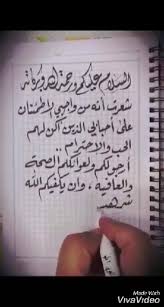 السلام عليكم ورحمة الله وبركاته
شعرت أنه من واجبي الاطمئنان
على أحبابي الذين أكن لهم
الحب والاحترام..
أرجو لكم ولعوائلكم الصحة
والعافية، وان يكفيكم الله
شر
Made With
VivaVideo